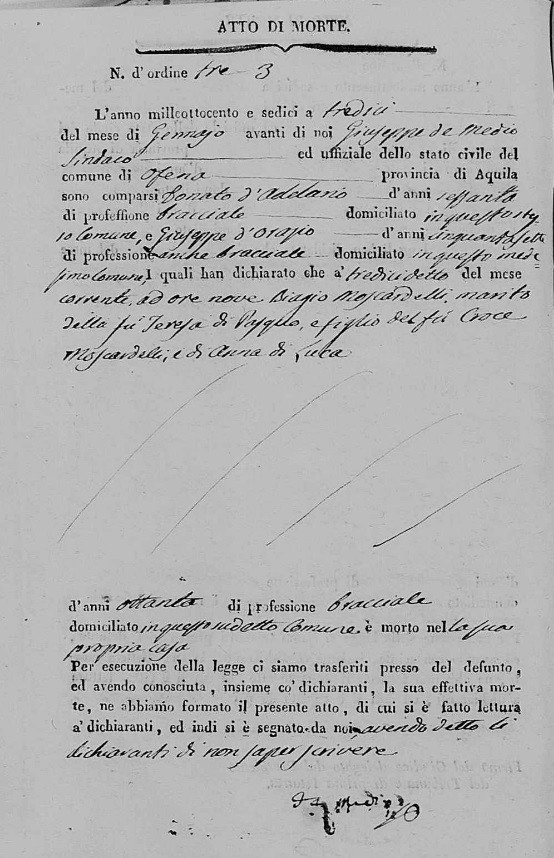 ATTO DI MORTE.
N. d'ordine tre 3
L'anno milleottocento e sedici a tredici
del mese di Gennajo avanti di noi Giuseppe de Medio
Sindaco ed uffiziale dello stato civile del
comune di Ofena provincia di Aquila
sono comparsi Donato d'Addario d'anni sessanta
di professione bracciale domiciliato in questo stes
so Comune, e Giuseppe d'Orazio d'anni cinquantasette
di professione anche bracciale domiciliato in questo mede
simo Comune, I quali han dichiarato che a' tredici detto del mese
corrente, ad ore nove Biagio Moscardelli, marito
della fù Teresa di Pasquo, e figlio del fù Croce
Moscardelli, e di Anna di Luca
d'anni ottanta di professione bracciale
domiciliato in questo sudetto Comune, è morto nella sua
propria casa
Per esecuzione della legge ci siamo trasferiti presso del defunto,
ed avendo conosciuta, insieme co' dichiaranti, la sua effettiva mor-
te, ne abbiamo formato il presente atto, di cui si è fatto lettura
a' dichiaranti, ed indi si è segnato da noi, avendo detto li
dichiaranti di non saper scrivere